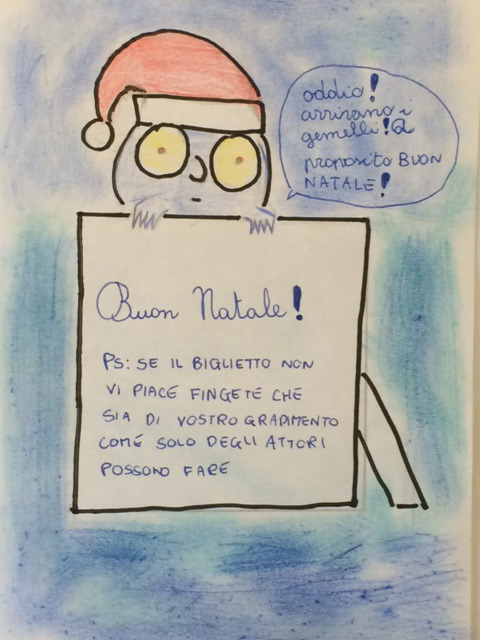 oddio!
arrivano i
gemelli! A
proposito BUON
NATALE!
Buon Natale!
PS: SE IL BIGLIETTO NON
VI PIACE FINGETE CHE
SIA DI VOSTRO GRADIMENTO
COME SOLO DEGLI ATTORI
POSSONO FARE